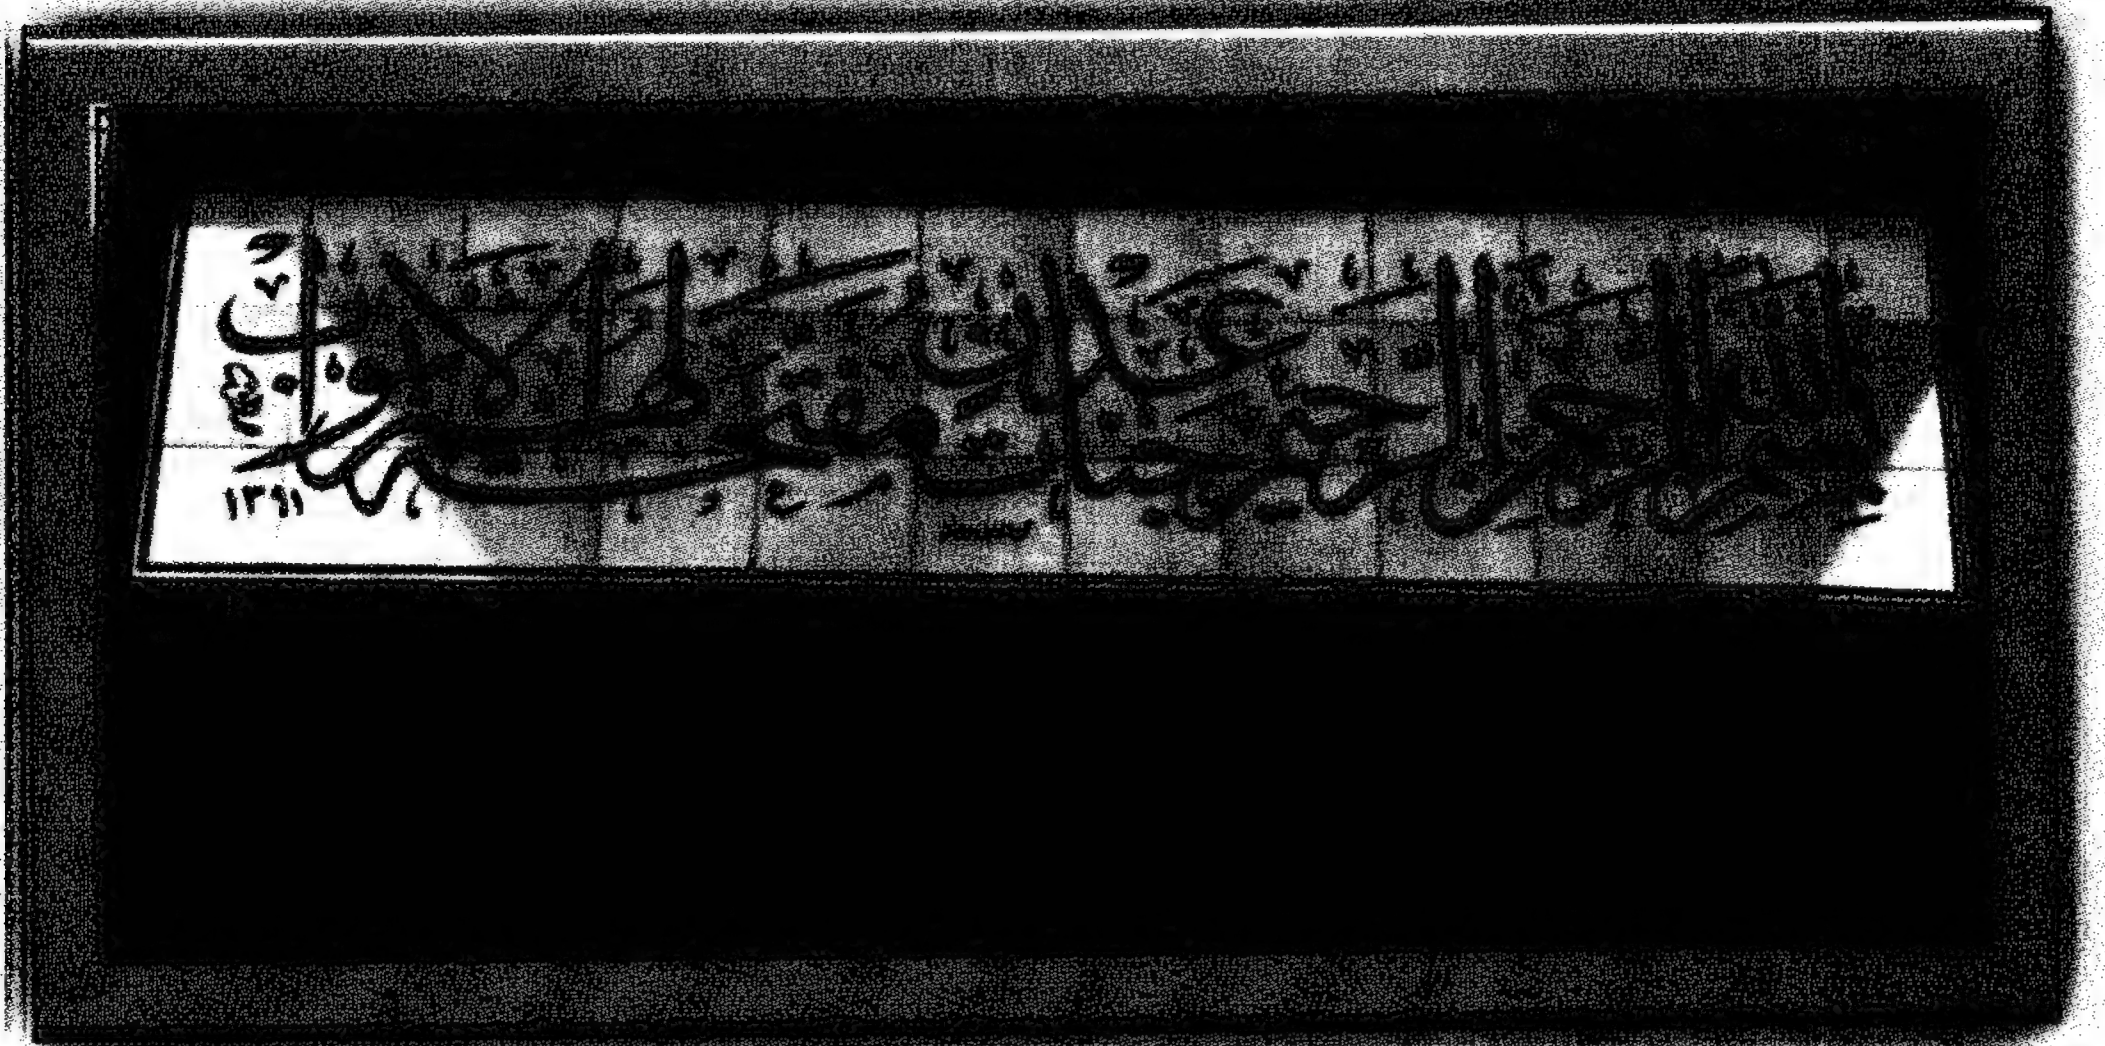 بسم الله الرحمن الرحيم جنات عدن مفتحة لهم الابواب
١٣٩١